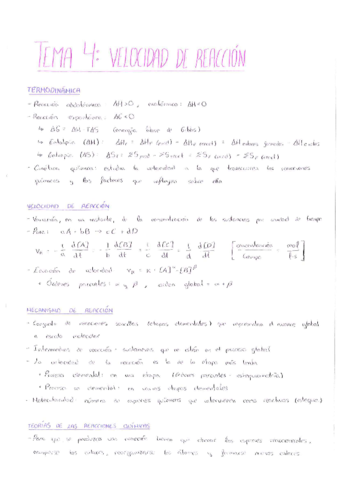 TEMA 4: VELOCIDAD DE REACCIÓN
TERMODINÁMICA
- Reacción endotérmica: ΔH>0, exotérmica: ΔH<0
- Reacción espontánea: ΔG<0
↳ ΔG = ΔH - TΔS (energía libre de Gibbs)
↳ Entalpía (ΔH):
↳ Entropía (ΔS):
- Cinética química: estudia la velocidad a la que transcurren las reacciones
químicas y los factores que influyen sobre ella
VELOCIDAD DE REACCIÓN
- Variación, en un instante, de la concentración de las sustancias por unidad de tiempo
- Para: aA + bB → cC + dD
v_R = - 1/a d[A]/dt = - 1/b d[B]/dt = 1/c d[C]/dt = 1/d d[D]/dt [concentración/tiempo = mol/l·s]
- Ecuación de velocidad v_R = k·[A]^α·[B]^β
• Órdenes parciales = α y β, orden global = α + β
MECANISMO DE REACCIÓN
- Conjunto de reacciones sencillas (etapas elementales) que representan el avance global
a escala molecular
- Intermedios de reacción: sustancias que no están en el proceso global
- La velocidad de la reacción es la de la etapa más lenta
• Proceso elemental: en una etapa (órdenes parciales = estequiométricos)
• Proceso no elemental: en varias etapas elementales
- Molecularidad: número de especies químicas que intervienen como reactivos (integran)
TEORÍAS DE LAS REACCIONES QUÍMICAS
- Para que se produzca una reacción tienen que chocar las especies
romperse los enlaces, reorganizarse los átomos y formar nuevos enlaces